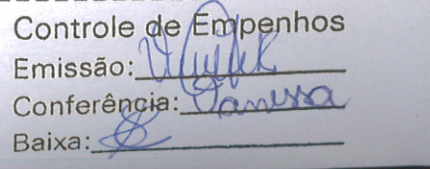 Controle de Empenhos
Emissão:
Conferência: Vanessa
Baixa: